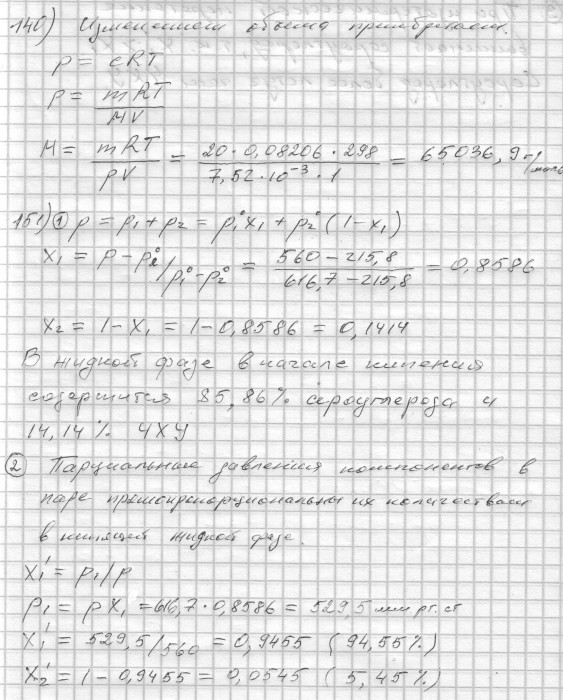 146) Изменением объема пренебрегаем.
p = cRT
p = mRT / MV
M = mRT / pV = 20 · 0,08206 · 298 / 7,52 · 10⁻³ · 1 = 65036,9 г/моль
151) ① p = p₁ + p₂ = p₁° x₁ + p₂° (1 – x₁)
x₁ = p – p₂° / p₁° – p₂° = 560 – 215,8 / 616,7 – 215,8 = 0,8586
x₂ = 1 – x₁ = 1 – 0,8586 = 0,1414
В жидкой фазе в начале кипения
содержится 85,86% сероуглерода и
14,14% ЧХУ
② Парциальные давления компонентов в
паре прямопропорциональны их количествам
в кипящей жидкой фазе.
x₁′ = p₁/p
p₁ = p x₁ = 616,7 · 0,8586 = 529,5 мм рт. ст
x₁′ = 529,5/560 = 0,9455 (94,55%)
x₂′ = 1 – 0,9455 = 0,0545 (5,45%)